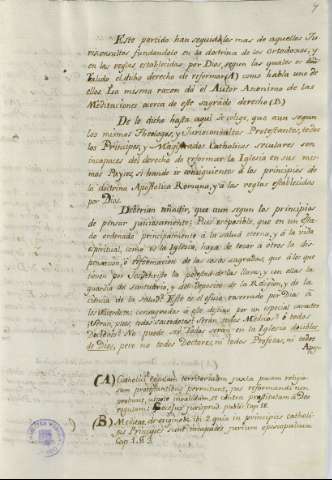 Este partido han seguido los mas de aquellos Ju
risconsultos fundandolo en la doctrina de los ortodoxos, y
en las reglas establecidas por Dios, segun las quales es
el dicho derecho de reformar (A) como habla uno de
ellos. La misma razon dá el Autor Anonimo de las
Meditaciones acerca de este sagrado derecho (B)
De lo dicho hasta aqui se colige, que aun segun
los mismos Theologos, y Jurisconsultos Protestantes, todos
los Principes, y Magistrados Catholicos seculares son
incapaces del derecho de reformar la Iglesia en sus mis
mos Payses, si hande ser consiguientes á los principios de
la doctrina Apostolica Romana, y á las reglas establecidas
por Dios.
Deberian añadir, que aun segun los principios
de pensar juiciosamente; Pues es posible, que en un
ordenado principalmente á la salud eterna, y á la vida
spiritual, como es la Iglesia, haya de tocar á otros la dis
posicion, ó reformacion de las cosas sagradas, que á los que
tienen por Jesuchristo la potestad de las llaves, y con ellas la
guardia del santuario, y del Deposito de la Religion, y de la
ciencia de la salud? Este es el oficio encerrado por Dios á
los Miembros consagrados á este destino por un especial caracter
Seran, pues, todos sacerdotes? serán todos Medicos? ó todos
Doctores? No puede ser. Todos serán en la Iglesia
de Dios, pero no todos Doctores, ni todos Profetas, ni todos
(A) Catholici quidem territoriali juxta suam religio
nem protestantibus permittunt, jus reformandi non
probant, utpote invalidum, et citra potestatem á Deo
jurisprud. public. cap. 18.
(B) 2 quia in principiis catholi
cis Principes sunt incapaces jurium episcopalium
Cap. 1. §. 2.